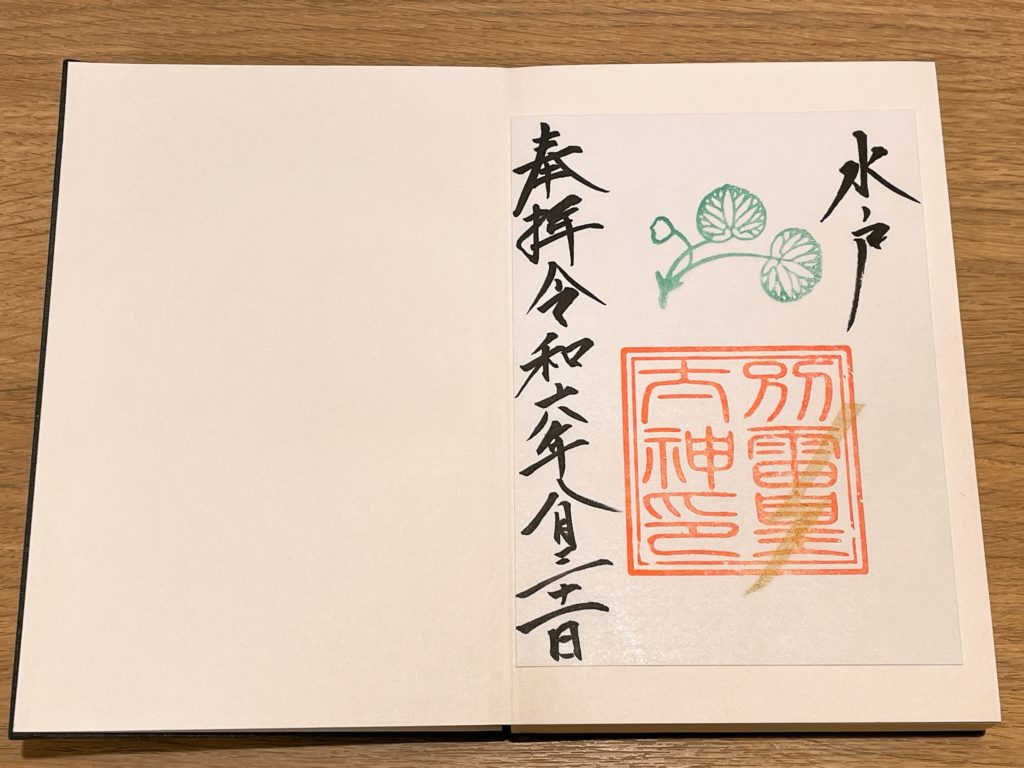 水戸
別雷皇
大神印
奉拝 令和六年八月三十一日